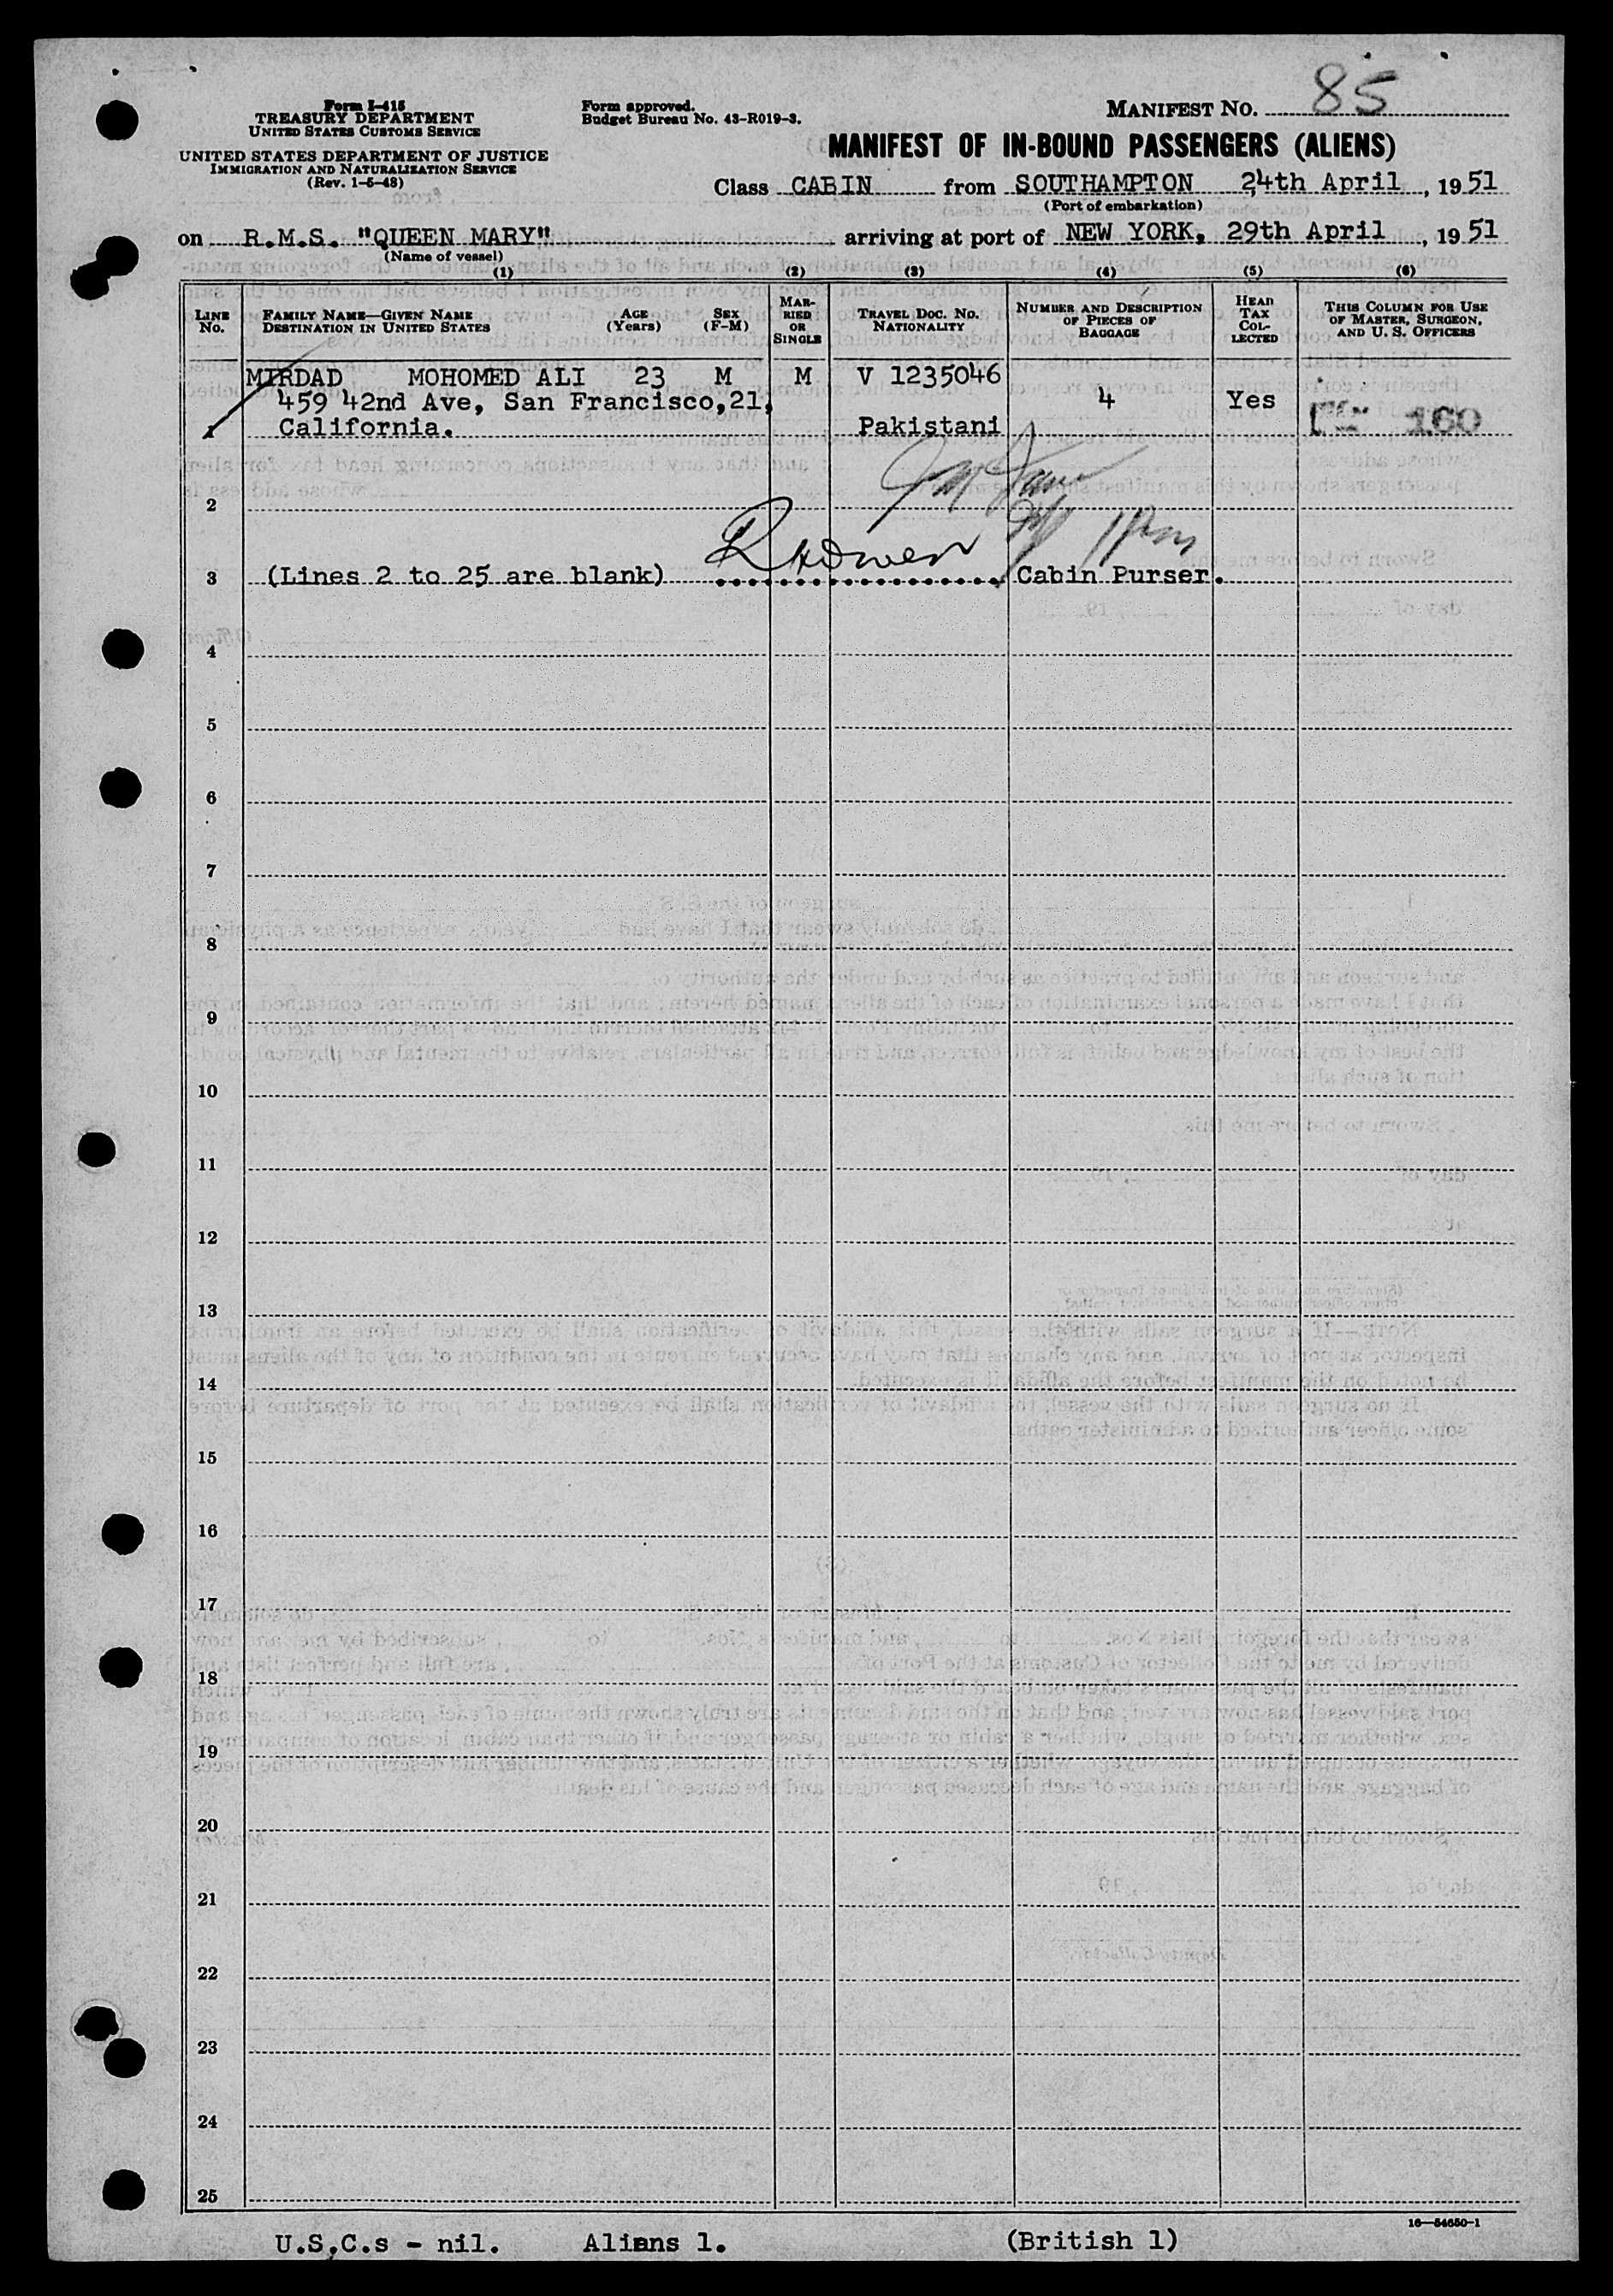 Form I-415
TREASURY DEPARTMENT
UNITED STATES CUSTOMS SERVICE
UNITED STATES DEPARTMENT OF JUSTICE
IMMIGRATION AND NATURALIZATION SERVICE
(Rev. 1-5-48)
Form approved.
Budget Bureau No. 43-R019-3.
MANIFEST NO. 85
MANIFEST OF IN-BOUND PASSENGERS (ALIENS)
Class CABIN from SOUTHAMPTON 24th April, 1951
(Port of embarkation)
on R.M.S. "QUEEN MARY" arriving at port of NEW YORK, 29th April, 1951
(Name of vessel)
(1) (2) (3) (4) (5) (6)
LINE NO. FAMILY NAME—GIVEN NAME DESTINATION IN UNITED STATES AGE (Years) SEX (F-M) MARRIED OR SINGLE TRAVEL DOC. NO. NATIONALITY NUMBER AND DESCRIPTION OF PIECES OF BAGGAGE HEAD TAX COLLECTED THIS COLUMN FOR USE OF MASTER, SURGEON, AND U. S. OFFICERS
MIRDAD MOHOMED ALI 23 M M V 1235046
459 42nd Ave, San Francisco,21, 4 Yes
1 California. Pakistani 160
2
3 (Lines 2 to 25 are blank) Cabin Purser.
4
5
6
7
8
9
10
11
12
13
14
15
16
17
18
19
20
21
22
23
24
25
16—54650-1
U.S.C.s - nil. Aliens 1. (British 1)